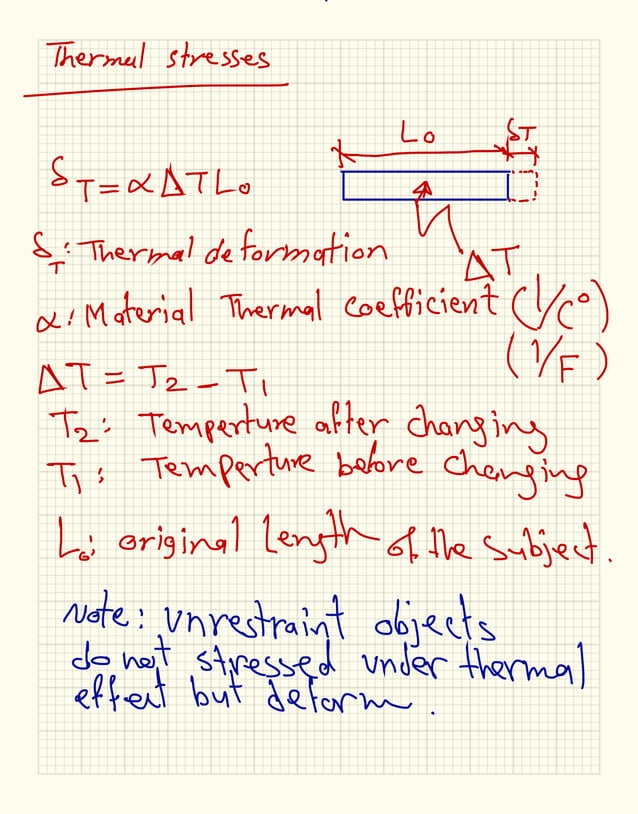 Thermal stresses
L₀ δT
δT = α ΔT L₀
δT: Thermal deformation
ΔT
α: Material Thermal coefficient (1/C°)
(1/F)
ΔT = T₂ - T₁
T₂: Temperture after changing
T₁: Temperture before changing
L₀: original length of the subject.
Note: Unrestraint objects
do not stressed under thermal
effect but deform.